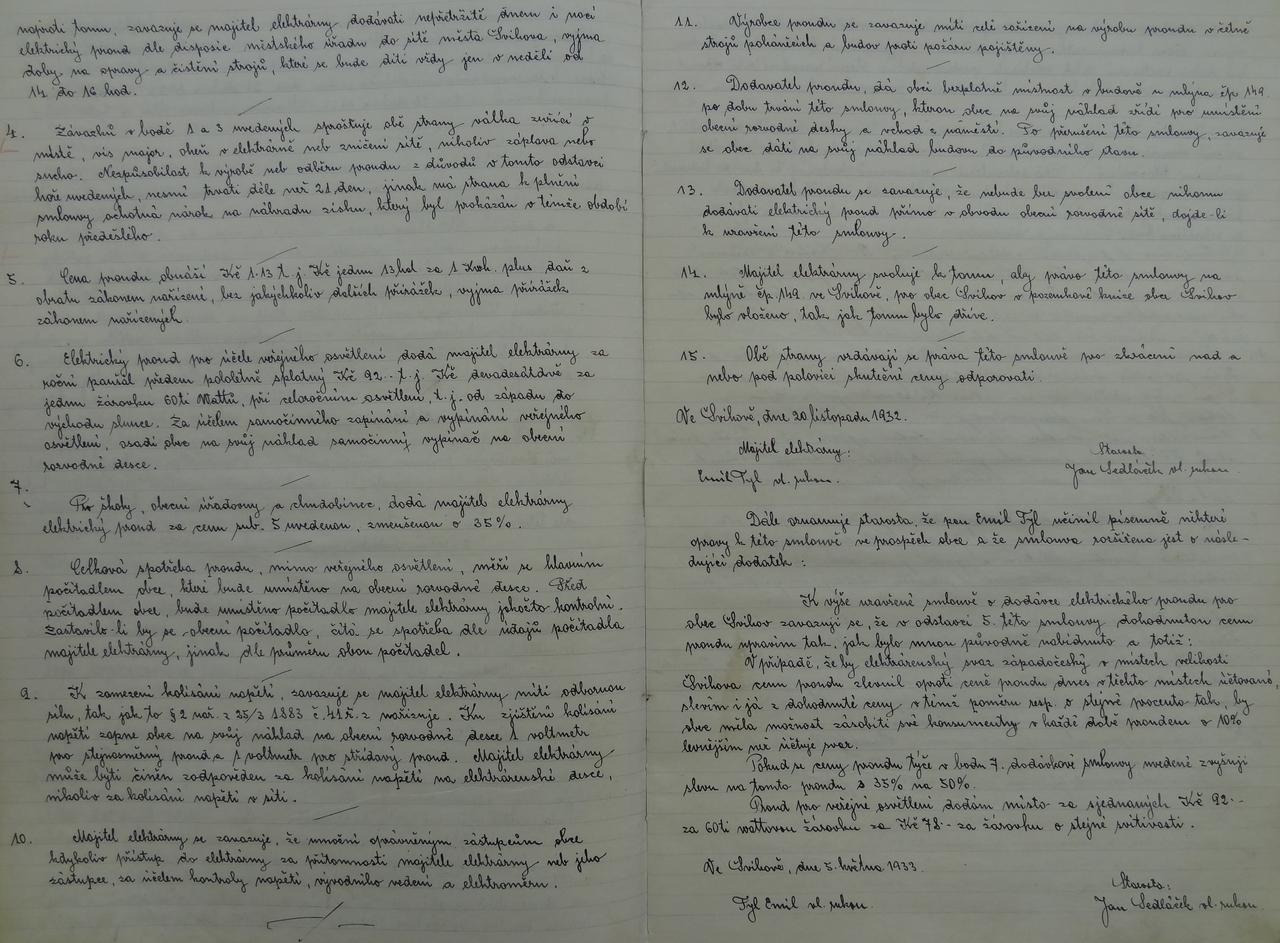 naproti tomu, zavazuje se majitel elektrárny dodávati nepřetržitě dnem i nocí
elektrický proud dle disposic městského úřadu do sítě města Švihova, vyjma
doby na opravy a čistění strojů, které se bude díti vždy jen v neděli od
14 do 16 hod.
4. Závazků v bodě 1 a 3 uvedených sprošťuje obě strany válka zuřící v
místě, vis major, oheň v elektrárně neb zničení sítě, nikoliv záplava nebo
sucho. Nezpůsobilost k výrobě neb odběru proudu z důvodů v tomto odstavci
hoře uvedených, nesmí trvati déle než 21 den, jinak má strana k plnění
smlouvy ochotná nárok na náhradu zisku, který byl prokázán v témže období
roku předešlého.
5. Cena proudu obnáší Kč 1.13 t.j. Kč jednu 13 hal za 1 Kwh. plus daň z
obratu zákonem nařízené, bez jakýchkoliv dalších přirážek, vyjma přirážek
zákonem nařízených.
6. Elektrický proud pro účele veřejného osvětlení dodá majitel elektrárny za
roční paušál předem pololetně splatný Kč 92.- t.j. Kč devadesátdvě za
jednu žárovku 60ti Wattů, při celoročním osvětlení, t.j. od západu do
východu slunce. Za účelem samočinného zapínání a vypínání veřejného
osvětlení, osadí obec na svůj náklad samočinný vypínač na obecní
rozvodné desce.
7. Pro školy, obecní úřadovny a chudobinec, dodá majitel elektrárny
elektrický proud za cenu sub. 5 uvedenou, zmenšenou o 35%.
8. Celková spotřeba proudu, mimo veřejného osvětlení, měří se hlavním
počítadlem obce, které bude umístěno na obecní rozvodné desce. Před
počítadlem obce, bude umístěno počítadlo majitele elektrárny jakožto kontrolní.
Zastavilo-li by se obecní počítadlo, čítá se spotřeba dle údajů počítadla
majitele elektrárny, jinak dle průměru obou počítadel.
9. K zamezení kolísání napětí, zavazuje se majitel elektrárny míti odbornou
sílu, tak jak to § 2 nař. z 25/3 1883 č. 41 ř.z nařizuje. Ku zjištění kolísání
napětí zapne obec na svůj náklad na obecní rozvodné desce 1 voltmetr
pro stejnosměrný proud a 1 voltmetr pro střídavý proud. Majitel elektrárny
může býti činěn zodpověden za kolísání napětí na elektrárenské desce,
nikoliv za kolísání napětí v síti.
10. Majitel elektrárny se zavazuje, že umožní oprávněným zástupcům obce
kdykoliv přístup do elektrárny za přítomnosti majitele elektrárny neb jeho
zástupce, za účelem kontroly napětí, vývodního vedení a elektroměru.
11. Výrobce proudu se zavazuje míti celé zařízení na výrobu proudu v četně
strojů poháněcích a budov proti požáru pojištěny.
12. Dodavatel proudu, dá obci bezplatně místnost v budově u mlýna čp 149
po dobu trvání této smlouvy, kterou obec na svůj náklad zřídí pro umístění
obecní rozvodné desky a vchod z náměstí. Po přerušení této smlouvy, zavazuje
se obec dáti na svůj náklad budovu do původního stavu.
13. Dodavatel proudu se zavazuje, že nebude bez svolení obce nikomu
dodávati elektrický proud přímo v obvodu obecní rozvodné sítě, dojde-li
k uzavření této smlouvy.
14. Majitel elektrárny svoluje k tomu, aby právo této smlouvy na
mlýně čp. 149 ve Švihově, pro obec Švihov v pozemkové knize obce Švihov
bylo vloženo, tak jak tomu bylo dříve.
15. Obě strany vzdávají se práva této smlouvě pro zkrácení nad a
nebo pod polovici skutečné ceny odporovati.
Ve Švihově, dne 20 listopadu 1932.
Majitel elektrárny: Starosta
Emil Tyl vl. rukou. Jan Sedláček vl. rukou.
Dále oznamuje starosta, že pan Emil Tyl učinil písemně některé
opravy k této smlouvě ve prospěch obce a že smlouva rozšířena jest o násle-
dující dodatek:
K výše uzavřené smlouvě o dodávce elektrického proudu pro
obec Švihov zavazuji se, že v odstavci 5. této smlouvy dohodnutou cenu
proudu upravím tak, jak bylo mnou původně nabídnuto a totiž:
V případě, že by elektrárenský svaz západočeský v místech velikosti
Švihova cenu proudu zlevnil oproti ceně proudu dnes v těchto místech účtované,
slevím i já z dohodnuté ceny v témž poměru resp. o stejné procento tak, by
obec měla možnost zásobiti své konsumenty v každé době proudem o 10%
levnějším než účtuje svaz.
Pokud se ceny proudu týče v bodu 7. dodávkové smlouvy uvedené zvyšuji
slevu na tomto proudu s 35% na 50%.
Proud pro veřejné osvětlení dodám místo za sjednaných Kč 92.-
za 60ti wattovou žárovku za Kč 78.- za žárovku o stejné svítivosti.
Ve Švihově, dne 5. května 1933.
Starosta:
Tyl Emil vl. rukou. Jan Sedláček vl. rukou.